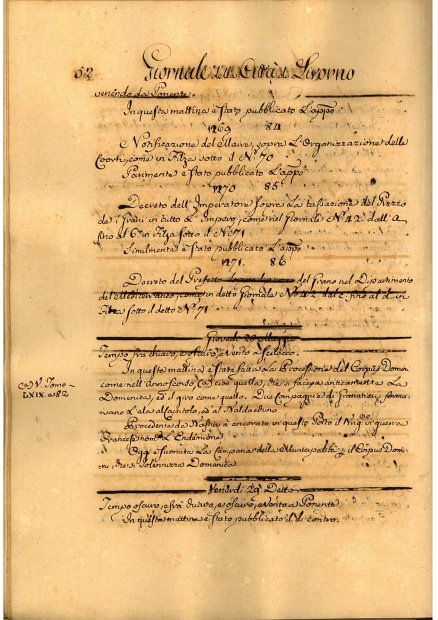 52
Giornale della Città di Livorno
venendo da Ponente.
In questa mattina è stato pubblicato l'appo
1269 84
Notificazione del Maire, sopra l'Organizzazione della
come in Filza sotto il N.º 70
Parimente è stato pubblicato l'appo
1270 85
Decreto dell'Imperatore sopra la tassazione del Prezzo
de i Grani in tutto l'Impero, come nel Giornale N.º 42 dall' a
fino al 6º in Filza sotto il N.º 71
Similmente è stato pubblicato l'appo
1271. 86
Decreto del Prefetto del Grano nel Dipartimento
del Mediterraneo, come in detto Giornale N.º 42 dal e fino al d. in
Filza sotto il detto N.º 71
Giovedì 28 Maggio
Tempo fra chiaro, e oscuro, e vento a Scilocco.
In questa mattina è stata fatta la Processione del Corpus Domini
come nell'Anno scorso (a) cioè quella, che si faceva anticamente la
Domenica, ed il giro come quello. Due Compagnie di Granatieri
l'ala al Santolo, ed al Baldacchino
(a) V. Tomo
LXIX. a 82
Procedente da è ancorato in questo Porto il in guerra
Francese nom.º L'Endimione
Oggi è suonata la Campana della Municipalità p il Corpus Domi-
ni, che si solennizza Domenica
Venerdì 29 Detto
Tempo oscuro, e oscuro, e vento a Ponente
In questa mattina è stato pubblicato il di contro.